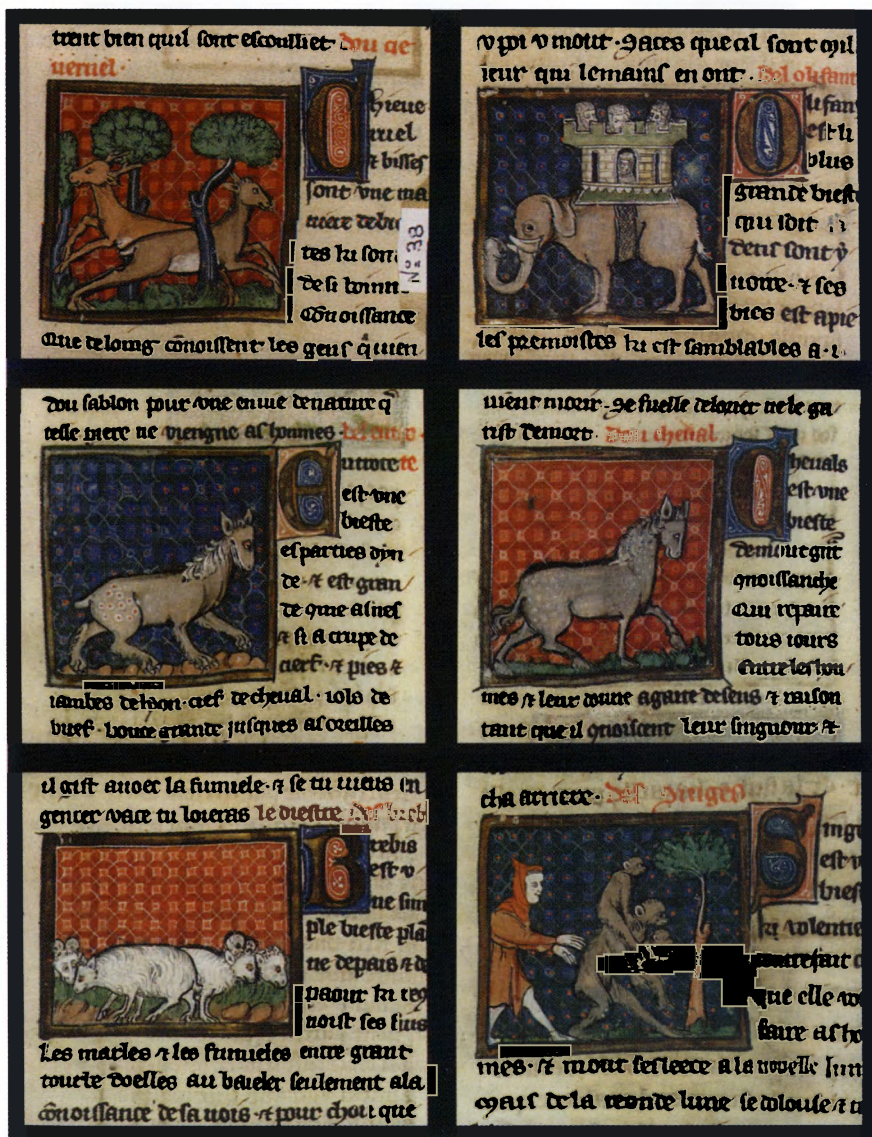 trent bien quil sont escoulliet. Dou ce
ueruel.
C
hieure
uruel
& bisses
sont vne ma
niere de bie
tes ki son
de si bonne
Connoissance
Que de loing cōnoissent les gens q̇ uien
Nº 38
v poi v mout. Saces que cil sont mil
ieur qui le mains en ont. Del olifant
O
lifans
est li
plus
grande bieste
qui soit
dent sont y
uoire. & ses
bies est apie
les premoistes ki est samblables a.i.
dou sablon pour vne enuie de nature q̄
telle piere ne viengne as hommes
E
est vne
bieste
es parties dyn
de. & est gran
de come asnes
& si a crupe de
cierf. & pies &
iambes de lyon. cief de cheual. iols de
buef. bouce grande jusques as oreilles
uient morir. Se fuelle de lorier ne le ga
rist de mort. Dou cheual
C
heuals
est vne
bieste
de mout gñt
qnoissanche
Qui repaire
tous iours
Entre les hou
mes & leur donne a garde de sens & raison
tant que il qnoiscent leur singnour &
il gist auoec la fumiele. & se tu uieus en
gencer vace tu loieras le diestre
B
rebis
est v
ne sim
ple bieste pla
ne de pais & de
paour ki reg
noist ses fius
Les marles & les fumieles entre grant
toucke doelles au baieler seulement a la
cōnoissance de sa uois. & pour chou que
cha arriere. Des Singes
S
inge
est v
bies
ki volentie
contrefait
que elle vo
faire as ho
mes. & mout sesleece a la nouelle lun
Mais de la reonde lune se dolouse &